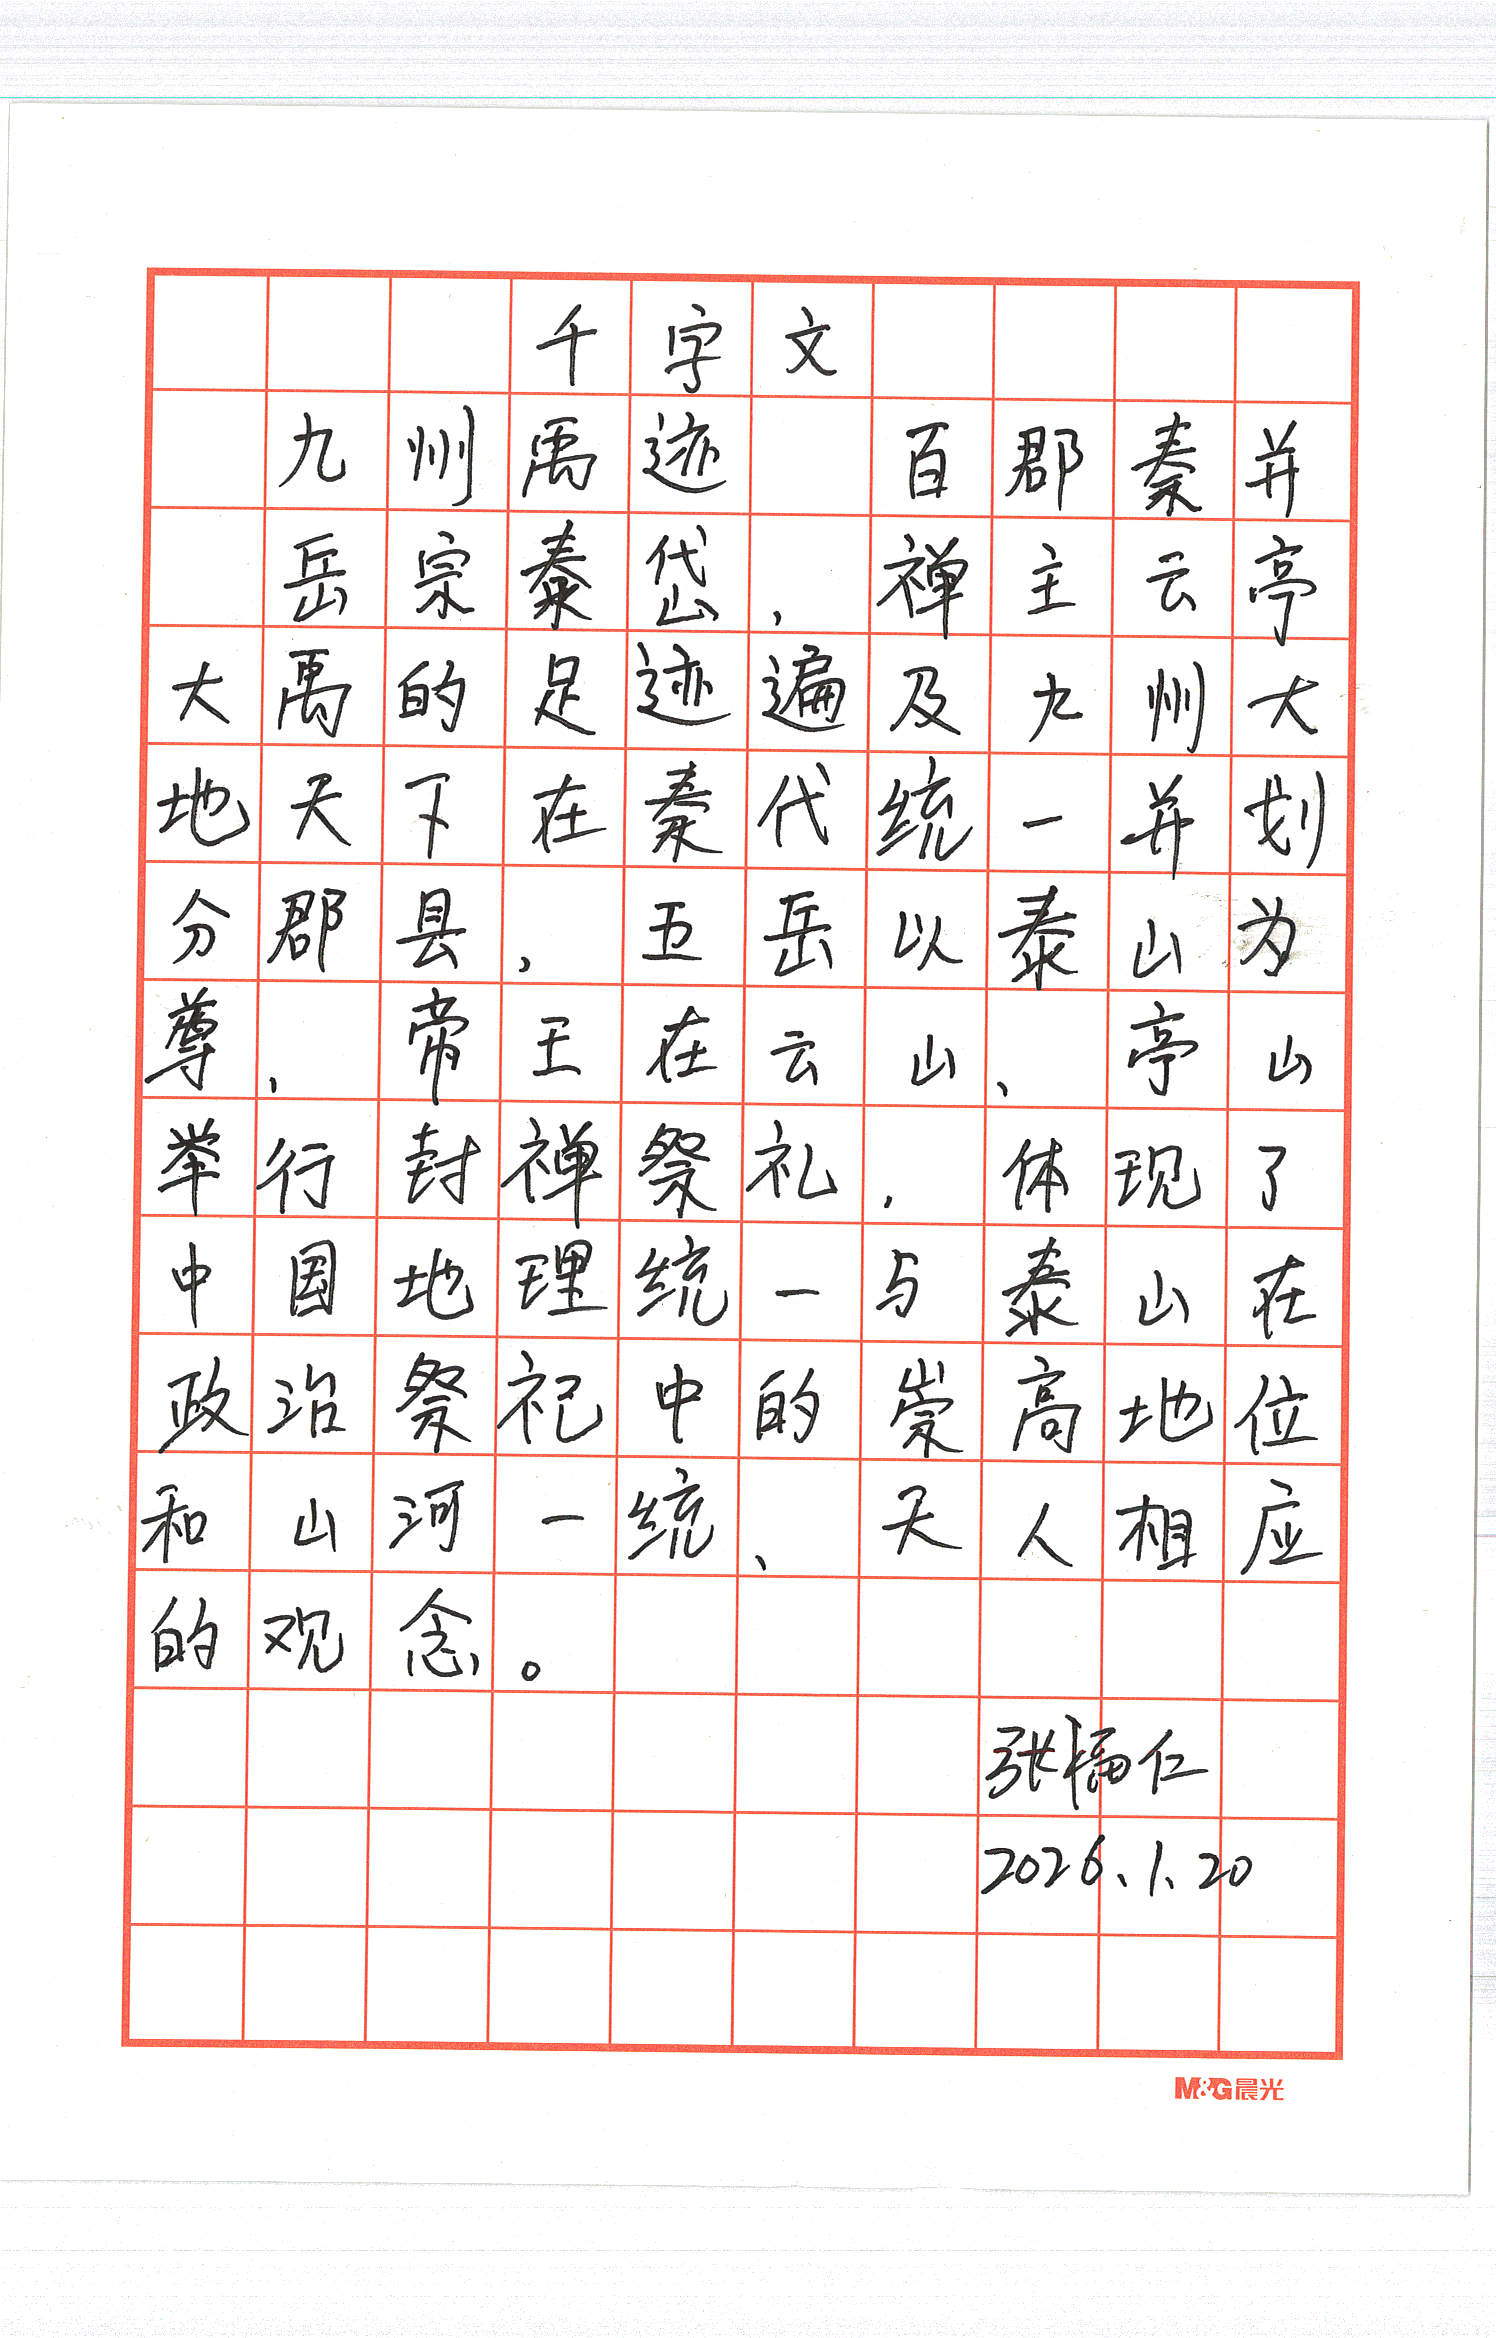 千字文
九州禹迹 百郡秦并
岳宗泰岱，禅主云亭
大禹的足迹遍及九州大
地天下在秦代统一并划
分郡县，五岳以泰山为
尊，帝王在云山、亭山
举行封禅祭礼，体现了
中国地理统一与泰山在
政治祭祀中的崇高地位
和山河一统、天人相应
的观念。
张福仁
2026.1.20
M&G晨光